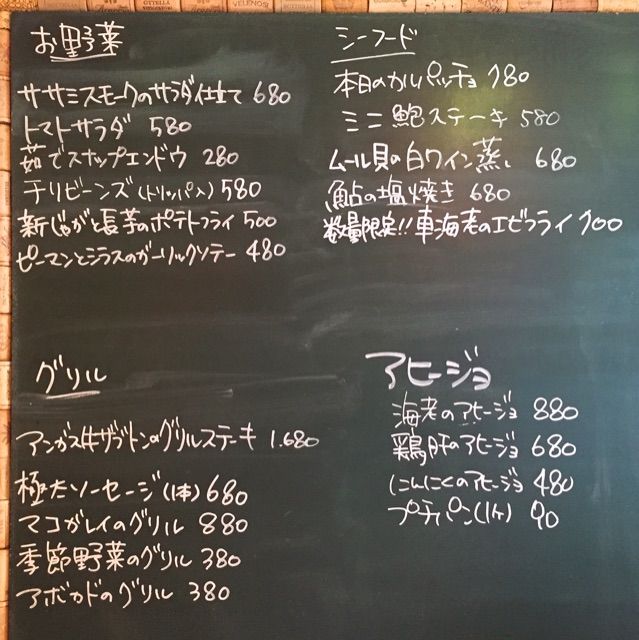 お野菜
ササミスモークのサラダ仕立て 680
トマトサラダ 580
茹でスナップエンドウ 280
チリビーンズ(トリッパ入) 580
新じゃがと長芋のポテトフライ 500
ピーマンとシラスのガーリックソテー 480
シーフード
本日のカルパッチョ 780
ミニ鮑ステーキ 580
ムール貝の白ワイン蒸し 680
鮎の塩焼き 680
数量限定!! 車海老のエビフライ 700
グリル
アンガス牛ザブトンのグリルステーキ 1.680
極太ソーセージ(1本) 680
マコガレイのグリル 880
季節野菜のグリル 380
アボカドのグリル 380
アヒージョ
海老のアヒージョ 880
鶏肝のアヒージョ 680
にんにくのアヒージョ 480
プチパン(1ケ) 90